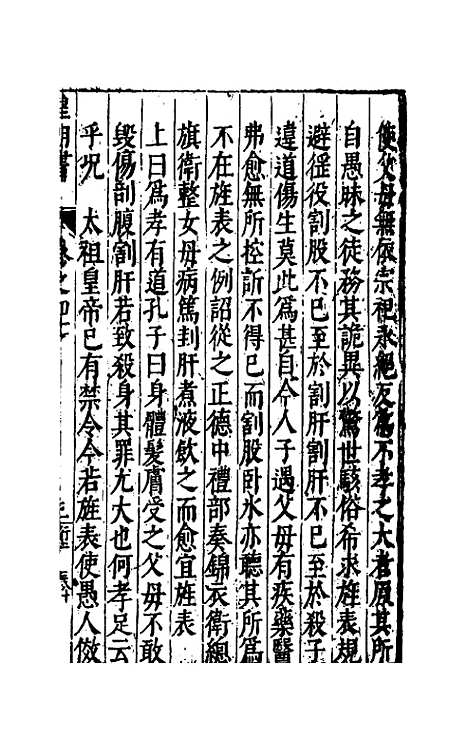 使父母無依宗祀永絕反爲不孝之大者原其所
自愚昧之徒務其詭異以驚世駭俗希求旌表規
避徭役割股不已至於割肝割肝不已至於殺子
違道傷生莫此爲甚自今人子遇父母有疾藥醫
弗愈無所控訴不得已而割股臥氷亦聽其所爲
不在旌表之例詔從之正德中禮部奏錦衣衛總
旗衛整女母病篤刲肝煮液飲之而愈宜旌表
上曰爲孝有道孔子曰身體髮膚受之父母不敢
毀傷剖腹割肝若致殺身其罪尤大也何孝足云
乎况 太祖皇帝已有禁令今若旌表使愚人倣
皇明書 卷之四十